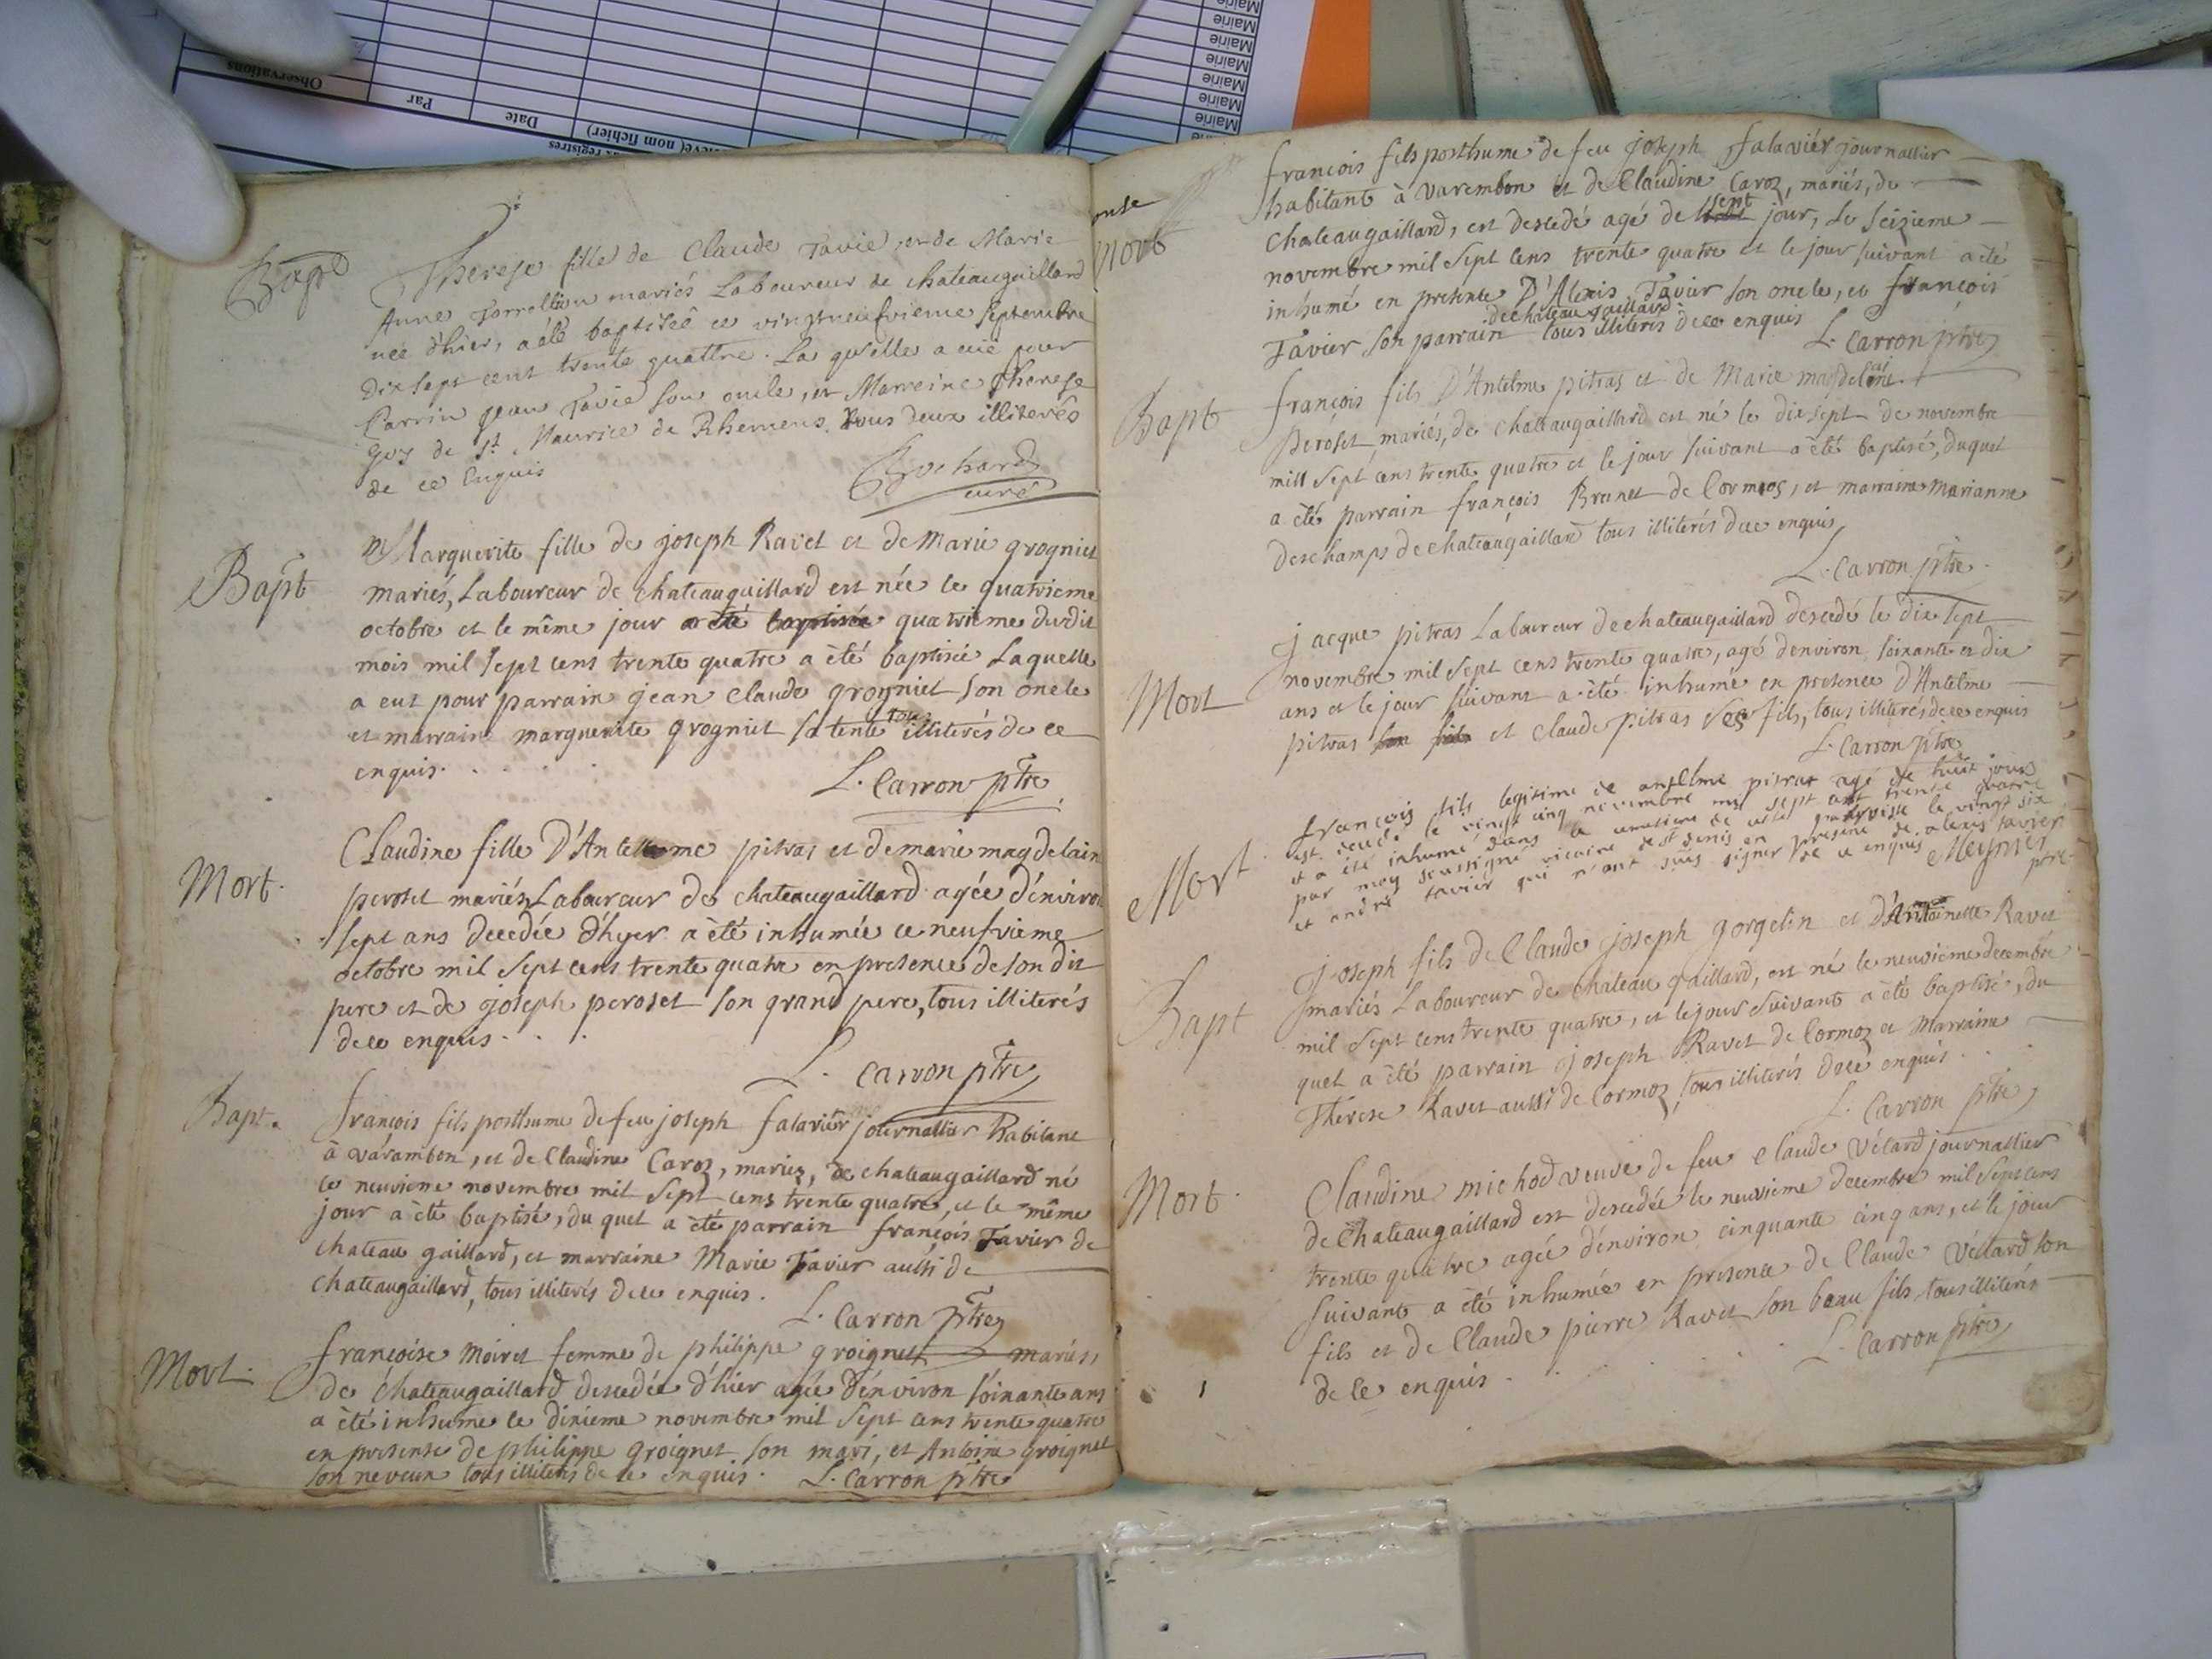 Mairie
Mairie
Mairie
Mairie
Mairie
Mairie
Observations
Par
Date
(nom fichier)
registres
Bapt
Therese fille de Claude Tavié, et de Marie
Anne mariés Laboureur de chateaugaillard
née d'hier, a été baptisée ce vingtneufvieme septembre
dix sept cent trente quattre. La qu'elle a eüe pour
Parrin jean Tavié son oncle, et Marreine Therese
Guy de St. Maurice de Rhemens. tous deux illiterés
de ce Enquis
Brochard
curé
Bapt
Marguerite fille de joseph Ravet et de Marie grogniet
mariés, Laboureur de chateaugaillard est née le quatrieme
octobre et le même jour a été baptisée quatrieme dudit
mois mil sept cens trente quatre a été baptisée Laquelle
a eut pour parrain jean claude grogniet son oncle
et marraine marguerite grogniet sa tente tous illiterés de ce
enquis.
L. Carron ptre
Mort.
Claudine fille D'Antelme pitras et de marie magdelain
peroset mariés, Laboureur de chateaugaillard agée d'environ
sept ans decedée d'hyer a été inhumée ce neufvieme
octobre mil sept cens trente quatre en presence de son dit
pere et de joseph peroset son grand pere, tous illiterés
de ce enquis.
L. Carron ptre
Bapt.
françois fils posthume de feu joseph falavier journallier habitant
à varambon, et de Claudine Caroz, mariez, de chateaugaillard né
le neuvieme novembre mil sept cens trente quatre, et le même
jour a été baptisé, du quel a été parrain françois Tavier de
chateau gaillard, et marraine Marie Tavier aussi de
chateaugaillard, tous illiterés de ce enquis.
L. Carron ptre
Mort.
françoise Moiret femme de philippe groignet mariés,
de chateaugaillard descedée d'hier agée d'environ soixante ans
a été inhume le dixieme novembre mil sept cens trente quatre
en presense de philippe groignet son mari, et Antoine groignet
son neveux tous illiterés de ce enquis. L. Carron ptre
Mort
françois fils posthume de feu joseph falavier journallier
habitant à varembon et de Claudine Caroz, mariés, de
chateaugaillard, est descedé agé de sept jour, le seizieme
novembre mil sept cens trente quatre et le jour suivant a été
inhumé en presence D'Alexis Tavier son oncle, et françois
de chateaugaillard
Tavier son parrain tous illiterés de ce enquis
L. Carron ptre
Bapt
françois fils D'Antelme pitras et de Marie magdelaine
peroset, mariés, de chateaugaillard est né le dix sept de novembre
mill sept cens trente quatre et le jour suivant a été baptisé, duquel
a été parrain françois Brunet de Cormoz, et marraine Marianne
deschamps de chateaugaillard tous illiterés de ce enquis
L. Carron ptre.
Mort
jacque pitras Laboureur de chateaugaillard descedé le dix sept
novembre mil sept cens trente quatre, agé denviron soixante et dix
ans et le jour suivant a été inhumé en presence D'Antelme
pitras son fils et claude pitras ses fils, tous illiterés de ce enquis
L. Carron ptre
Mort
françois fils legitime de anselme pitras agé de huit jours
est decedé le vingt cinq novembre mil sept cent trente quatre
et a été inhumé dans le cemetiere de cette parroisse le vingt six
par moy soussigné vicaire de st denis en presence de alexis tavier
et andré tavier qui n'ont sçus signer de ce enquis. Meynier
ptre
Bapt
joseph fils de Claude joseph gorgelin et d'Antoinette Ravet
mariés Laboureur de chateau gaillard, est né le neuvieme decembre
mil sept cens trente quatre, et le jour suivant a été baptisé, du
quel a été parrain joseph Ravet de Cormoz et Marraine
Therese Ravet aussi de Cormoz, tous illiterés de ce enquis.
L. Carron ptre
Mort.
Claudine michod veuve de feu claude vélard journallier
de Chateaugaillard est descedée le neuvieme decembre mil sept cens
trente quatre agée d'environ cinquante cinq ans, et le jour
suivant a été inhumée en presence de Claude Vélard son
fils et de Claude pierre Ravet son beau fils tous illiterés
de ce enquis.
L. Carron ptre